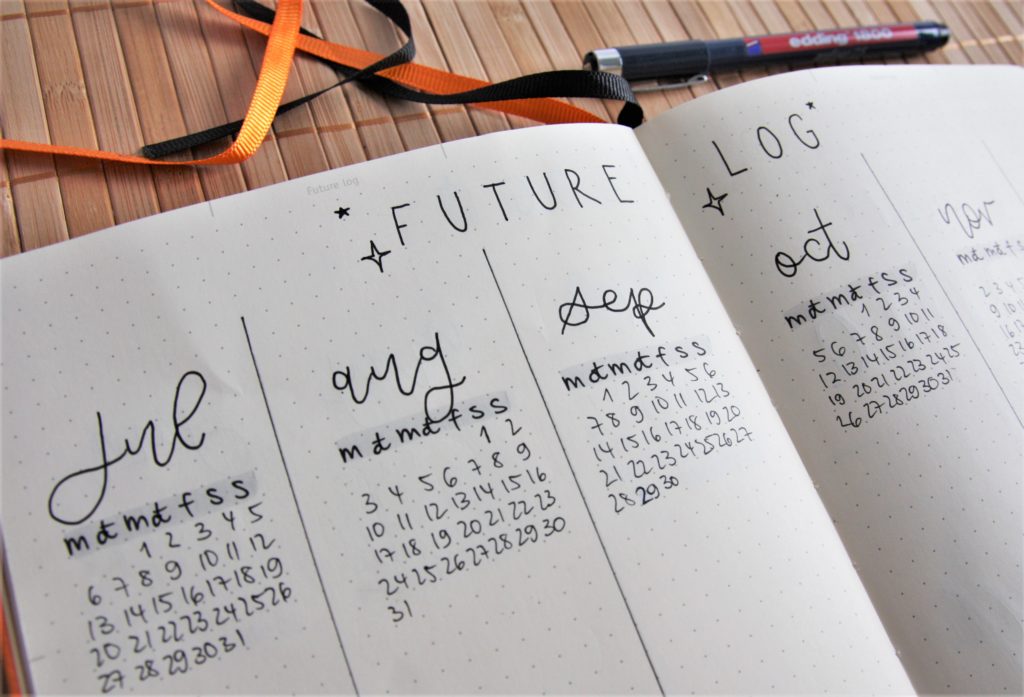 edding 1800
Future log
FUTURE LOG
jul
m d m d f s s
1 2 3 4 5
6 7 8 9 10 11 12
13 14 15 16 17 18 19
20 21 22 23 24 25 26
27 28 29 30 31
aug
m d m d f s s
1 2
3 4 5 6 7 8 9
10 11 12 13 14 15 16
17 18 19 20 21 22 23
24 25 26 27 28 29 30
31
sep
m d m d f s s
1 2 3 4 5 6
7 8 9 10 11 12 13
14 15 16 17 18 19 20
21 22 23 24 25 26 27
28 29 30
oct
m d m d f s s
1 2 3 4
5 6 7 8 9 10 11
12 13 14 15 16 17 18
19 20 21 22 23 24 25
26 27 28 29 30 31
nov
m d m d f
2 3 4
9 10
16
23